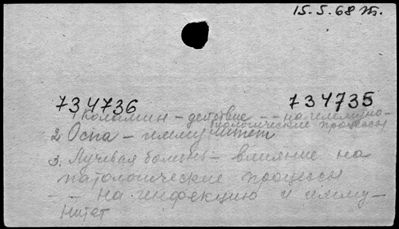 15.5.68 Ж.
734736 734735
1 Коламин – действие – – на иммуно-
биологические процессы
2. Оспа – иммунитет
3. Лучевая болезнь – влияние на
патологические процессы
– – На инфекцию и имму-
нитет